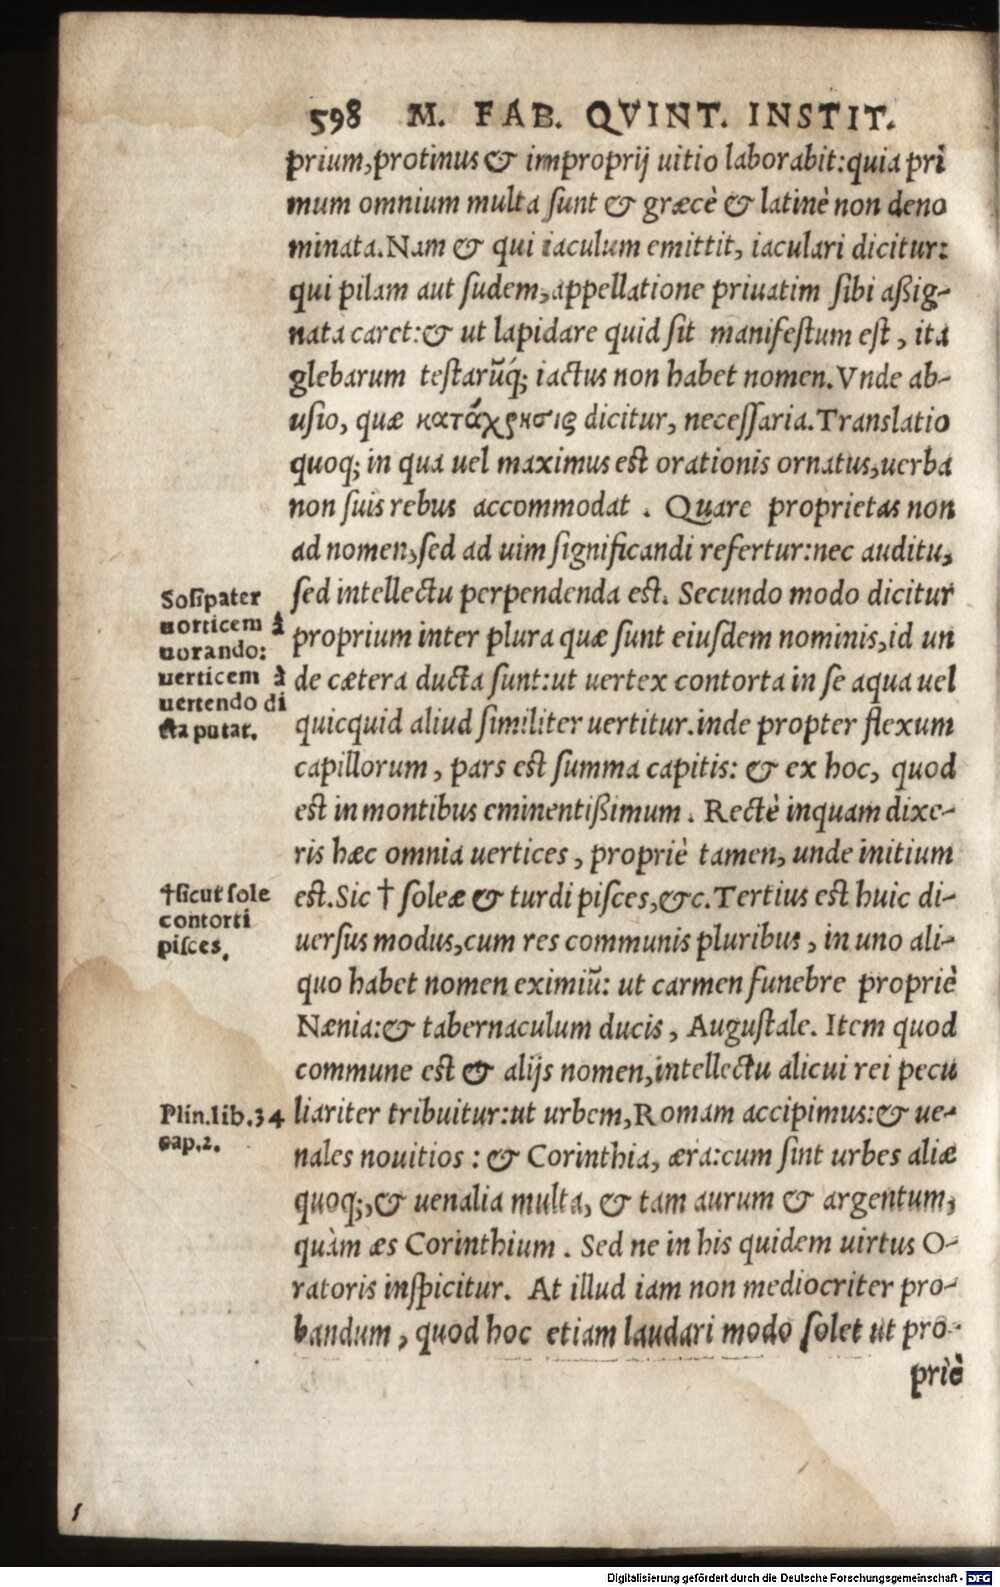 598 M. FAB. QVINT. INSTIT.
prium, protinus & improprij uitio laborabit: quia pri
mum omnium multa sunt & græcè & latinè non deno
minata. Nam & qui iaculum emittit, iaculari dicitur:
qui pilam aut sudem, appellatione priuatim sibi aßig-
nata caret: & ut lapidare quid sit manifestum est, ita
glebarum testarũq́; iactus non habet nomen. Vnde ab-
usio, quæ κατάχρησις dicitur, necessaria. Translatio
quoq; in qua uel maximus est orationis ornatus, uerba
non suis rebus accommodat. Quare proprietas non
ad nomen, sed ad uim significandi refertur: nec auditu,
sed intellectu perpendenda est. Secundo modo dicitur
proprium inter plura quæ sunt eiusdem nominis, id un
de cætera ducta sunt: ut uertex contorta in se aqua uel
quicquid aliud similiter uertitur. inde propter flexum
capillorum, pars est summa capitis: & ex hoc, quod
est in montibus eminentißimum. Rectè inquam dixe-
ris hæc omnia uertices, propriè tamen, unde initium
est. Sic † soleæ & turdi pisces, &c. Tertius est huic di-
uersus modus, cum res communis pluribus, in uno ali-
quo habet nomen eximiũ: ut carmen funebre propriè
Nænia: & tabernaculum ducis, Augustale. Item quod
commune est & alijs nomen, intellectu alicui rei pecu
liariter tribuitur: ut urbem, Romam accipimus: & ue-
nales nouitios: & Corinthia, æra: cum sint urbes aliæ
quoq;, & uenalia multa, & tam aurum & argentum,
quàm æs Corinthium. Sed ne in his quidem uirtus O-
ratoris inspicitur. At illud iam non mediocriter pro-
bandum, quod hoc etiam laudari modo solet ut pro-
priè
Sosipater
uorticem à
uorando:
uerticem à
uertendo di
cta putat.
†sicut sole
contorti
pisces.
Plin. lib. 34
cap. 2.
Digitalisierung gefördert durch die Deutsche Forschungsgemeinschaft - DFG